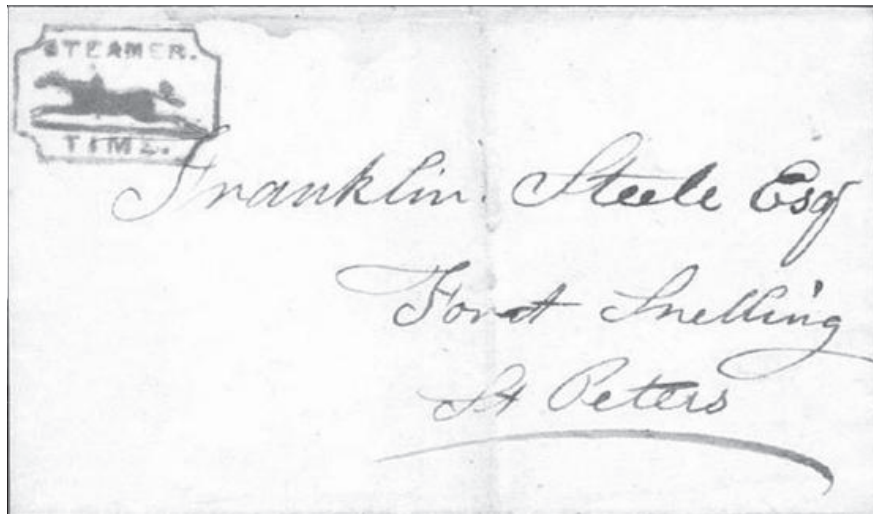 STEAMER.
TIME.
Franklin. Steele Esq
Fort Snelling
St Peters